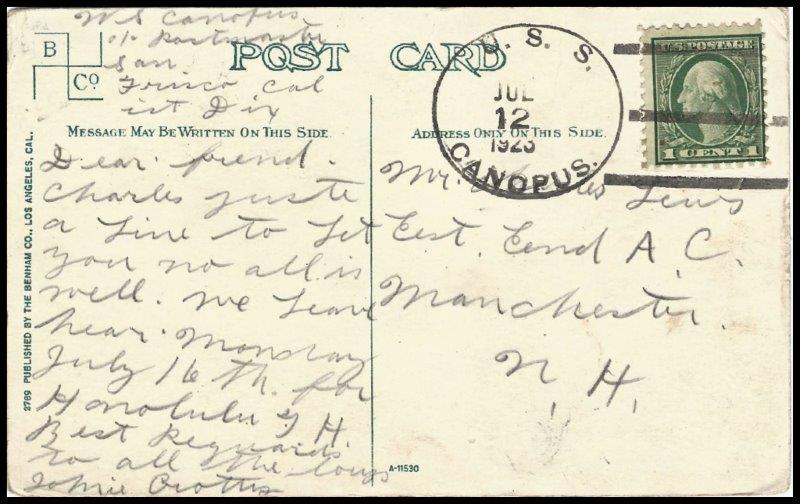 U S Canopus
c/o Postmaster
San
Frisco Cal
ist Div
B
Co
POST CARD
U. S. S.
JUL
12
1923
CANOPUS.
U.S. POSTAGE
1 CENT 1
MESSAGE MAY BE WRITTEN ON THIS SIDE.
ADDRESS ONLY ON THIS SIDE.
Dear friend.
Charles juste
a line to let
you no all is
well. we leave
hear Monday
July 16 th. for
Honolulu T H.
Best Regards
to all the boys
Johnie
Mr. Charles Lewis
East. End A. C.
Manchester.
N. H.
2769 PUBLISHED BY THE BENHAM CO., LOS ANGELES, CAL.
A-11530